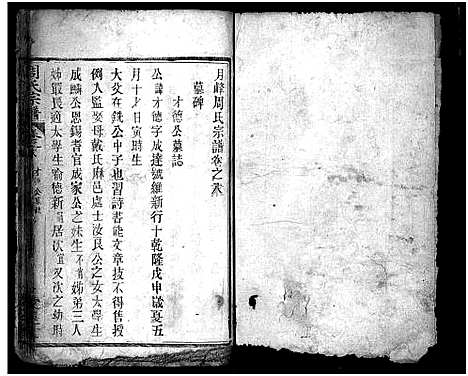 月峰周氏宗譜卷之
墓碑
才德公墓誌
公諱才德字成達號維新行十乾隆戊申歲夏五
月十九日寅時生
大父在鎬公中子也習詩書能文章技不得售授
例入監娶母戴氏麻邑處士汝良公之女太學生
成麟公恩錫耆官成家公之妹生不肖姊弟三人
姊最長適太學生喻德新居次又次之幼
周氏宗譜